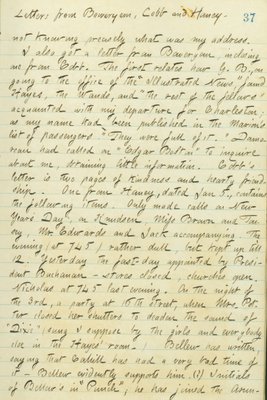 Letters from Boweryem, Cobb and Haney.
37
not knowing precisely what was my address.
I also got a letter from Boweryem, inclosing
one from Cobb. The first relates how he, B., on
going to the office of the "Illustrated News," found
Hayes, the Wauds, and the rest of the fellows
acquainted with my departure for Charleston,
as my name had been published in the Marion's
list of passengers. They were full of it. "Dama-
reau had called on "Edgar Bolton" to inquire
about me, obtaining little information. Cobb's
letter is two pages of kindness and hearty friend-
ship. One from Haney, dated Jan 5, contains
the following items. Only made calls on New
Years Day, on Knudsen, Miss Brown and Tou-
sey, Mr. Edwards and Jack accompanying. The
evening (at 745), rather dull, but kept up till
12. Yesterday the fast-day appointed by Presi-
dent Buchanan — stores closed, churches open.
Nicholas at 745 last evening. On the night of
the 3rd, a party at 16th Street, when Mrs. Pot-
ter closed her shutters to deaden the sound of
"Dixie" (sung I suppose by the girls and everybody
else in the Hayes' room.) Bellew has written,
saying that Cahill has had a very bad time of
it — Bellew evidently supports him. (?) Initials
of Bellew's in "Punch"; he has joined the Arun-